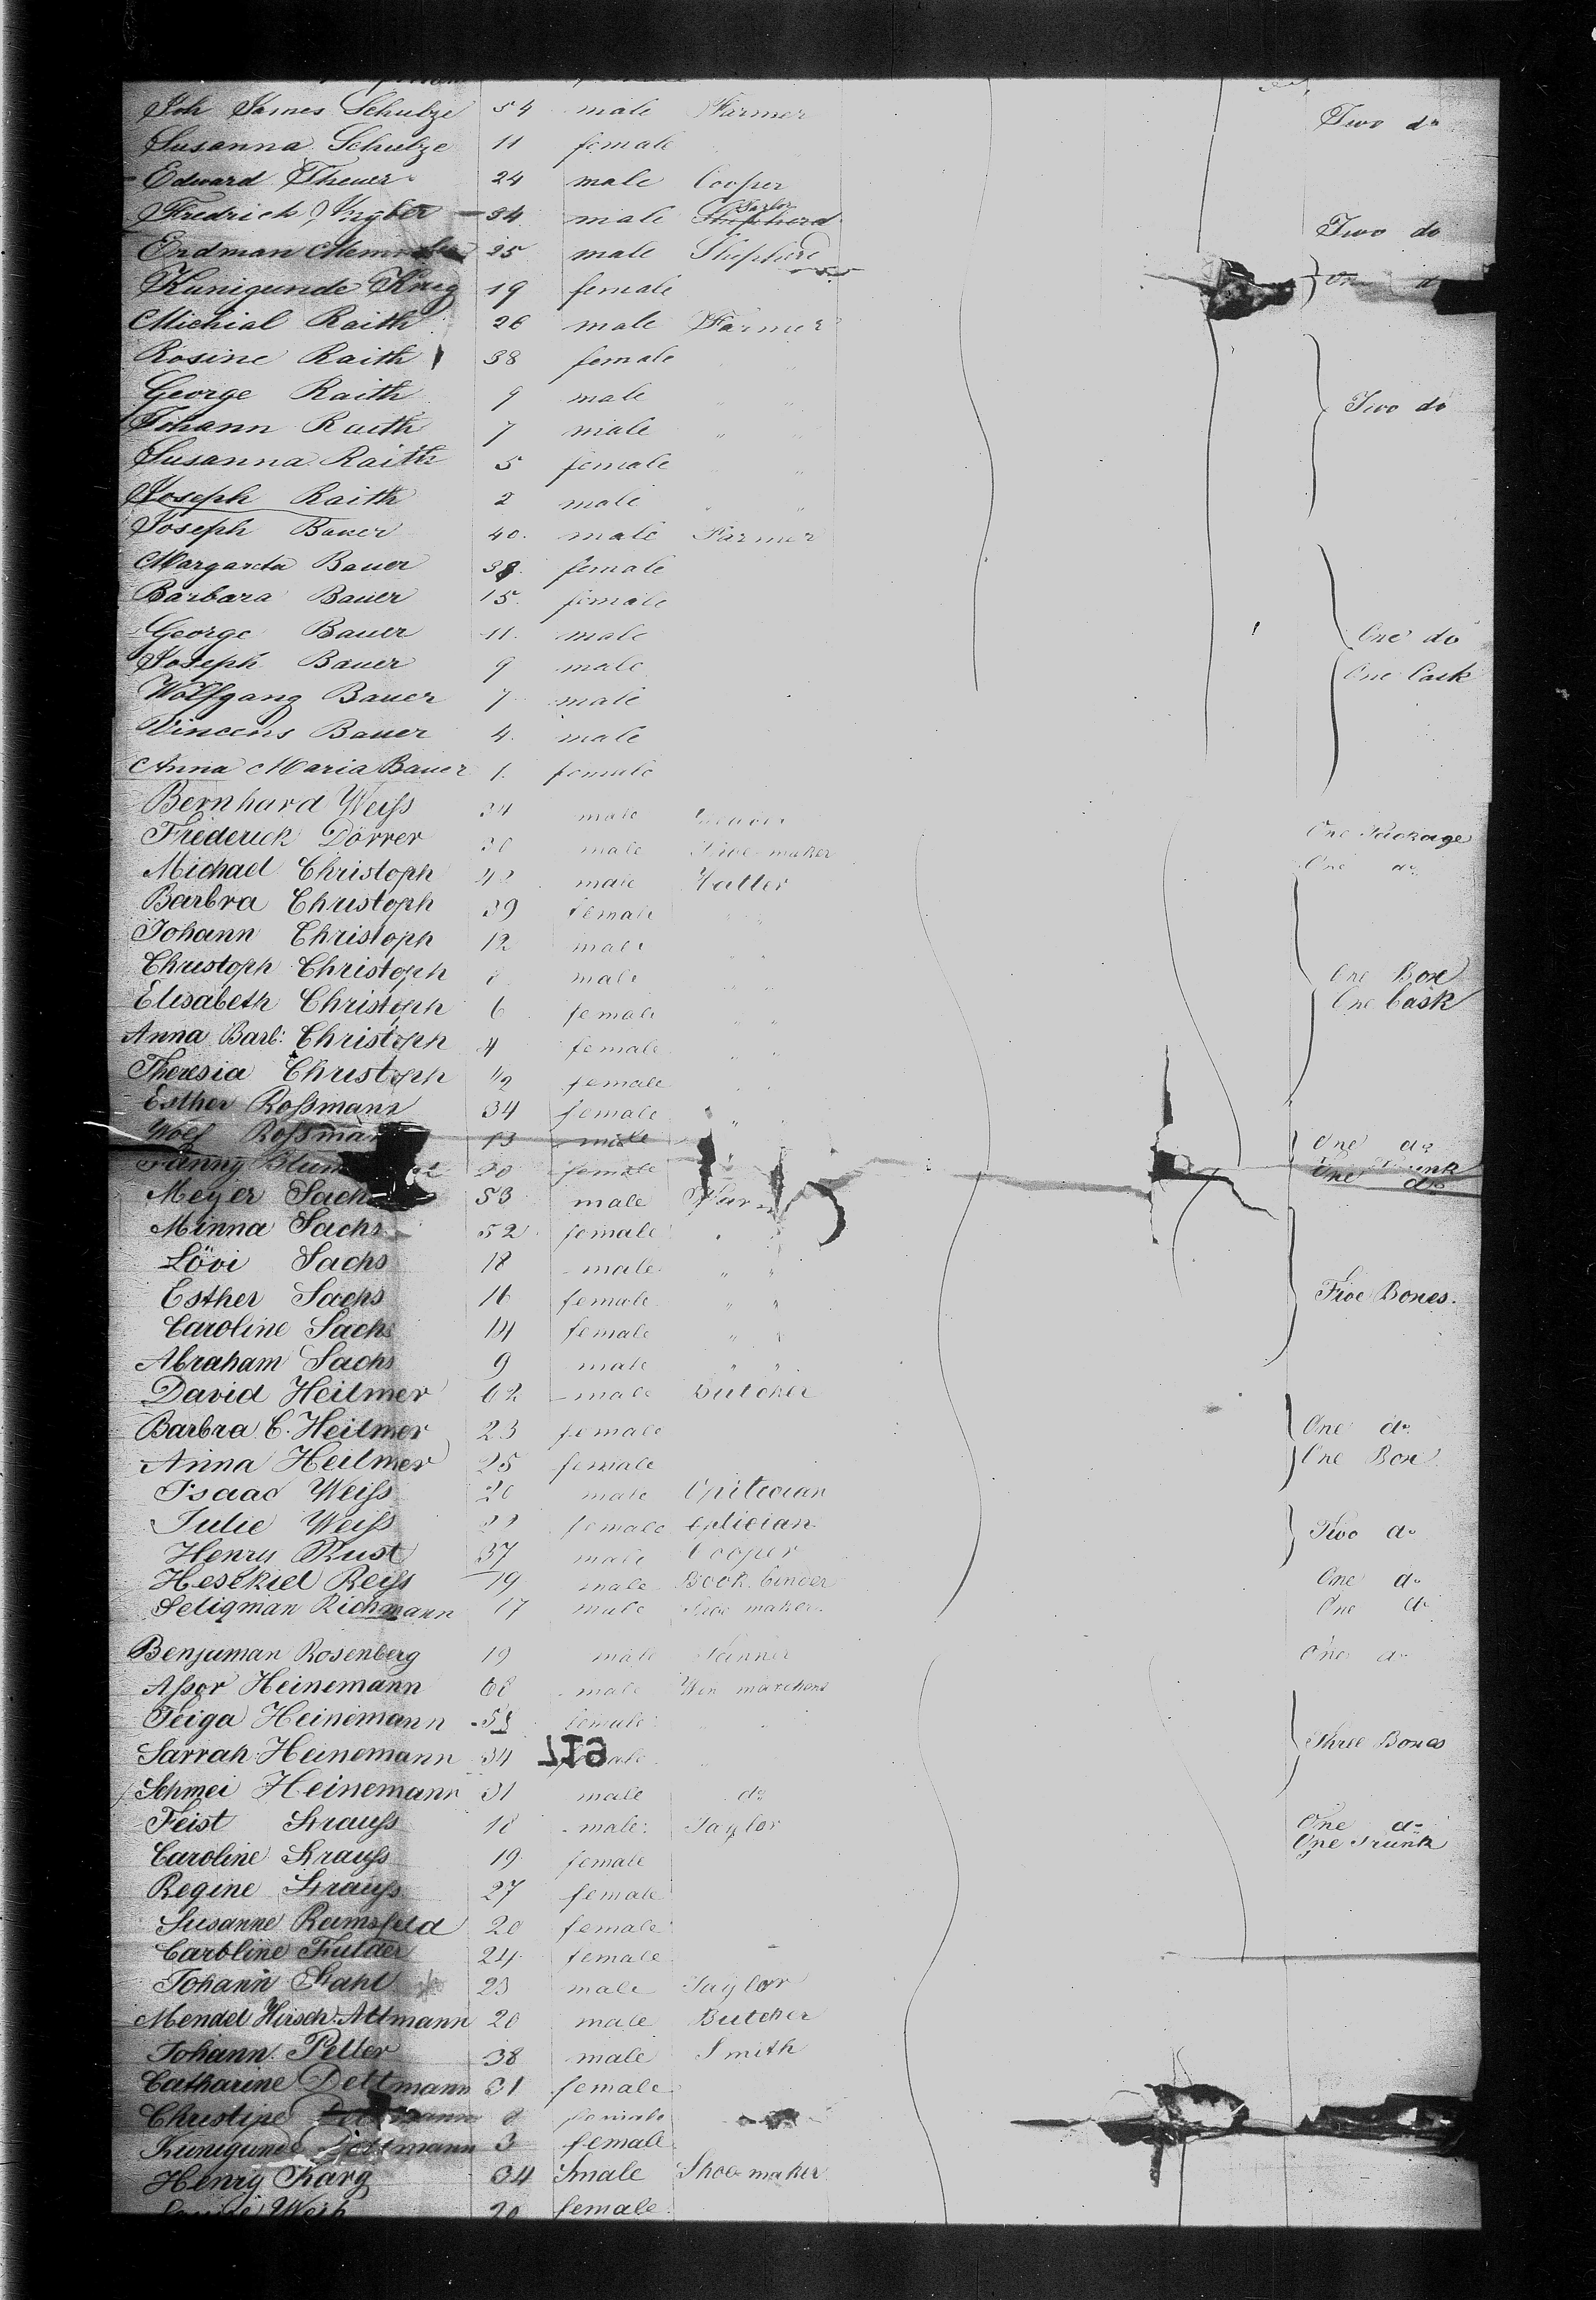 Joh James Schulze 54 male Farmer Two do
Susanna Schulze 11 female
Edward Theuer 24 male Cooper
Fredrich 34 male Shepherd Taylor Two do
Erdman 25 male Shepherd
Kunigunde Krug 19 female
Michial Raith 26 male Farmer
Rosine Raith 38 female
George Raith 9 male " " Two do
Johann Raith 7 male " "
Susanna Raith 5 female " "
Joseph Raith 2 male " "
Joseph Bauer 40. male Farmer
Margareta Bauer female
Barbara Bauer 15. female
George Bauer 11. male One do
Joseph Bauer 9 male One Cask
Wolfgang Bauer 7 male
Vincens Bauer 4. male
Anna Maria Bauer 1. female
Bernhard Weiſs 34 male One Package
Frederick Dörrer male Shoe-maker One do
Michael Christoph 42 male Hatter
Barbra Christoph 39 female " "
Johann Christoph 12 male "
Christoph Christoph 8 male " " One Box
Elisabeth Christoph 6 female " " One Cask
Anna Barb: Christoph 4 female " "
Theresia Christoph 1/2 female
Esther Roſsmann 34 female " "
Wolf Roſsman 13 male One do
Fanny 20 female One Trunk
Meyer Sachs 53 male One do
Minna Sachs 52 female
Lövi Sachs 18 male " "
Esther Sachs 16 female " " Five Boxes.
Caroline Sachs 14 female " "
Abraham Sachs 9 male " "
David Heilmer 62 male Butcher
Barbra C. Heilmer 23 female One do
Anna Heilmer 25 female One Box
Isaac Weiſs 26 male Opticoian
Julie Weiſs 22 female Optician Two do
Henry Rust 37 male Cooper
Hesekiel Reiſs 19 male Book binder One do
Seligman Richmann 17 male Shoe maker One do
Benjuman Rosenberg 19 male Tanner One do
Aſsor Heinemann 68 male marchant
Feiga Heinemann female
Sarrah Heinemann 34 female Three Boxes
617
Schmei Heinemann 31 male do
Feist Krauſs 18 male Taylor One do
Caroline Krauſs 19 female One Trunk
Regine Krauſs 27 female
Susanne Ramsfeld 20 female
Caroline Fulder 24 female
Johann Stahl 23 male Taylor
Mendel Hirsch Altmann 20 male Butcher
Johann Peller 38 male Smith
Catharine Dettmann 31 female
Christine Dettmann 8 female
Kunigunde Dettmann 3 female
Henry Karg 34 male Shoe maker
20 female